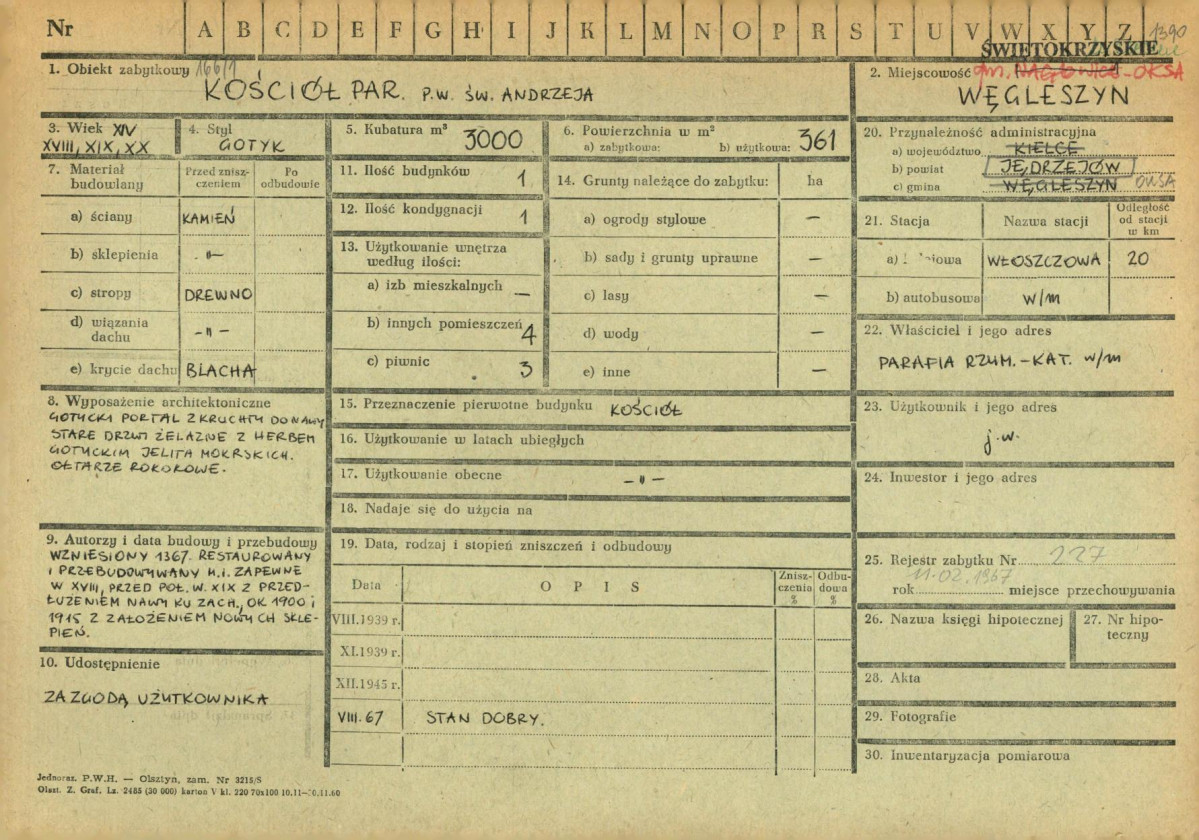 Nr A B C D E F G H I J K L M N O P R S T U V W X Y Z 1390
ŚWIĘTOKRZYSKIE
1. Obiekt zabytkowy 166/1
KOŚCIÓŁ PAR. P.W. ŚW. ANDRZEJA
2. Miejscowość gm. NAGŁOWICE - OKSA
WĘGLESZYN
3. Wiek XIV
XVIII, XIX, XX
4. Styl
GOTYK
5. Kubatura m³ 3000
6. Powierzchnia w m²
a) zabytkowa: b) użytkowa: 361
7. Materiał budowlany
Przed zniszczeniem
Po odbudowie
a) ściany KAMIEŃ
b) sklepienia -"-
c) stropy DREWNO
d) wiązania dachu -"-
e) krycie dachu BLACHA
8. Wyposażenie architektoniczne
GOTYCKI PORTAL Z KRUCHTY DO NAWY
STARE DRZWI ŻELAZNE Z HERBEM
GOTYCKIM JELITA MOKRSKICH.
OŁTARZE ROKOKOWE.
9. Autorzy i data budowy i przebudowy
WZNIESIONY 1367. RESTAUROWANY
I PRZEBUDOWYWANY M.I. ZAPEWNE
W XVIII, PRZED POŁ. W. XIX Z PRZED-
ŁUŻENIEM NAWY KU ZACH., OK 1900 i
1915 Z ZAŁOŻENIEM NOWYCH SKLE-
PIEŃ.
10. Udostępnienie
ZA ZGODĄ UŻYTKOWNIKA
11. Ilość budynków 1
12. Ilość kondygnacji 1
13. Użytkowanie wnętrza
według ilości:
a) izb mieszkalnych —
b) innych pomieszczeń 4
c) piwnic 3
14. Grunty należące do zabytku: ha
a) ogrody stylowe —
b) sady i grunty uprawne —
c) lasy —
d) wody —
e) inne —
15. Przeznaczenie pierwotne budynku KOŚCIÓŁ
16. Użytkowanie w latach ubiegłych
17. Użytkowanie obecne -"-
18. Nadaje się do użycia na
19. Data, rodzaj i stopień zniszczeń i odbudowy
Data O P I S Zniszczenia % Odbudowa %
VIII.1939 r.
XI.1939 r.
XII.1945 r.
VIII.67 STAN DOBRY.
20. Przynależność administracyjna
a) województwo KIELCE
b) powiat JĘDRZEJÓW
c) gmina WĘGLESZYN OKSA
21. Stacja Nazwa stacji Odległość od stacji w km
a) WŁOSZCZOWA 20
b) autobusowa w/m
22. Właściciel i jego adres
PARAFIA RZYM.-KAT. w/m
23. Użytkownik i jego adres
j.w.
24. Inwestor i jego adres
25. Rejestr zabytku Nr 227
11.02.1967
rok miejsce przechowywania
26. Nazwa księgi hipotecznej
27. Nr hipo-
teczny
28. Akta
29. Fotografie
30. Inwentaryzacja pomiarowa
Jednoraz. P.W.H. — Olsztyn, zam. Nr 3215/S
Olszt. Z. Graf. Lz. 2485 (30 000) karton V kl. 220 70x100 10.11—10.11.60